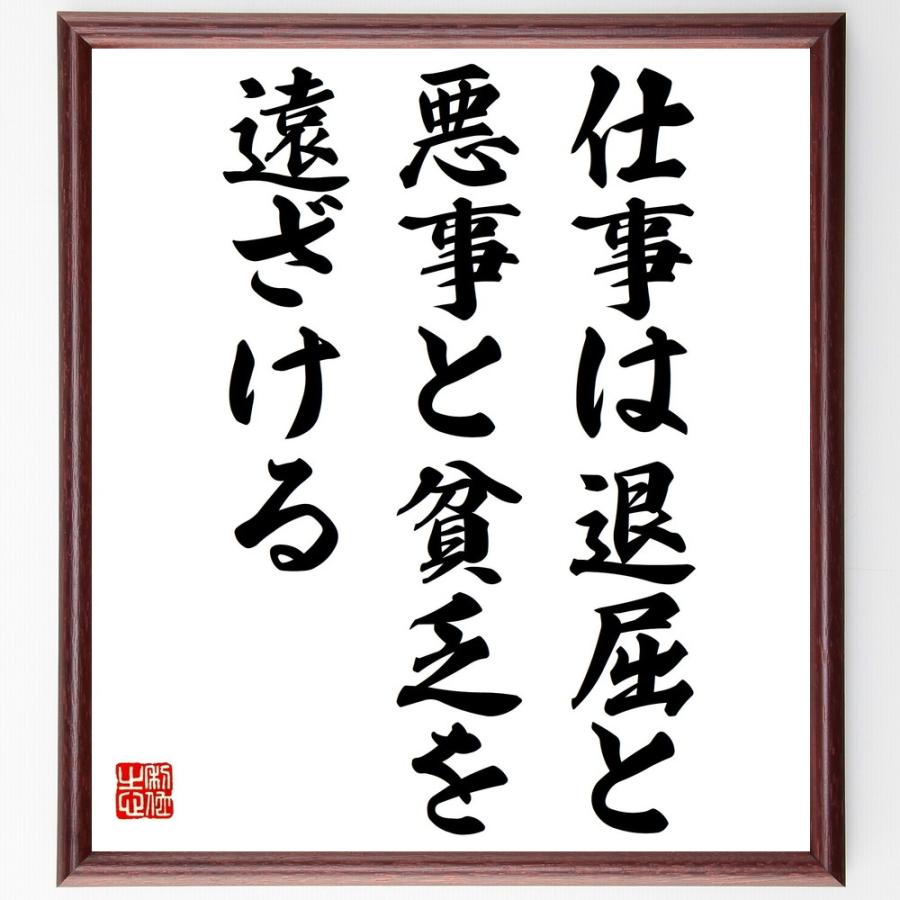 仕事は退屈と
悪事と貧乏を
遠ざける